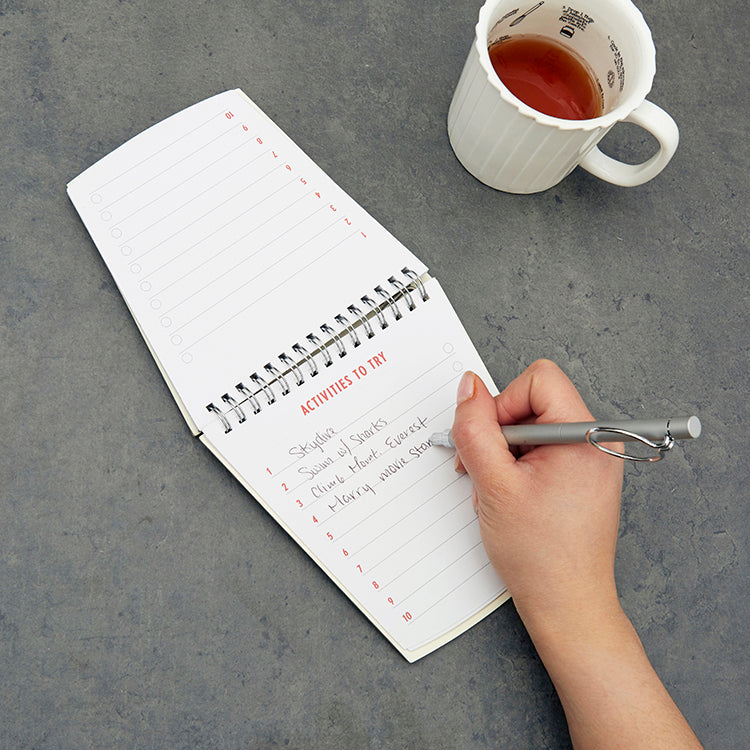 10
9
8
7
6
5
4
3
2
1
ACTIVITIES TO TRY
1 Skydive
2 Swim w/ Sharks
3 Climb Mount. Everest
4 Marry movie star
5
6
7
8
9
10